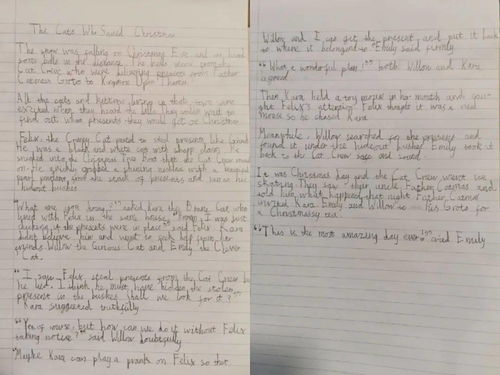 The Cats Who Saved Christmas
The snow was falling on Christmas Eve and we heard
bells in the distance. The bells were from the
Cat Crew who were bringing presents from Father
Catmas Grotto to Kingston Upon Thames.
All the cats and kittens living in that town were
excited when they heard the bells they could wait to
find out what presents they would get for Christmas.
Felix the Creepy Cat wanted to steal presents, like
He was a black and white cat with sharp claws. He
sneaked into the Christmas Tree Boat that the Cat Crew
on. He quickly grabbed a present with a
from the stack of presents and
hideout bushes.
"What are you doing?" asked Kara the Brave Cat who
lived with Felix in the same house. I was just
checking if the presents were in place" said Felix. Kara
didn't believe him and went to seek help from her
friends Willow the Curious Cat and Emily the Clever
Cat.
"I saw Felix steal presents from the Cat Crew but
he lied. I think he must have hidden the stolen
present in the bushes. Shall we look for it?"
Kara suggested truthfully.
"Yes of course, but how can we do it without Felix
taking notice?" said Willow doubtfully.
"Maybe Kara can play a prank on Felix so that
Willow and I can get the present and put it back
to where it belonged to" Emily said firmly.
"What a wonderful plan!" both Willow and Kara
agreed.
Then Kara held a toy mouse in her mouth and
Felix's attention. Felix thought it was a real
mouse so he chased Kara.
Meanwhile, Willow searched for the presents and
found it under the hideout bushes. Emily took it
back to the Cat Crew safe and sound.
It was Christmas Day and the Cat Crew went ice
skating. They saw their uncle Father Catmas and
told him what happened that night. Father Catmas
invited Kara Emily and Willow to his Grotto for
a Christmassy tea.
"This is the most amazing day ever!" cried Emily